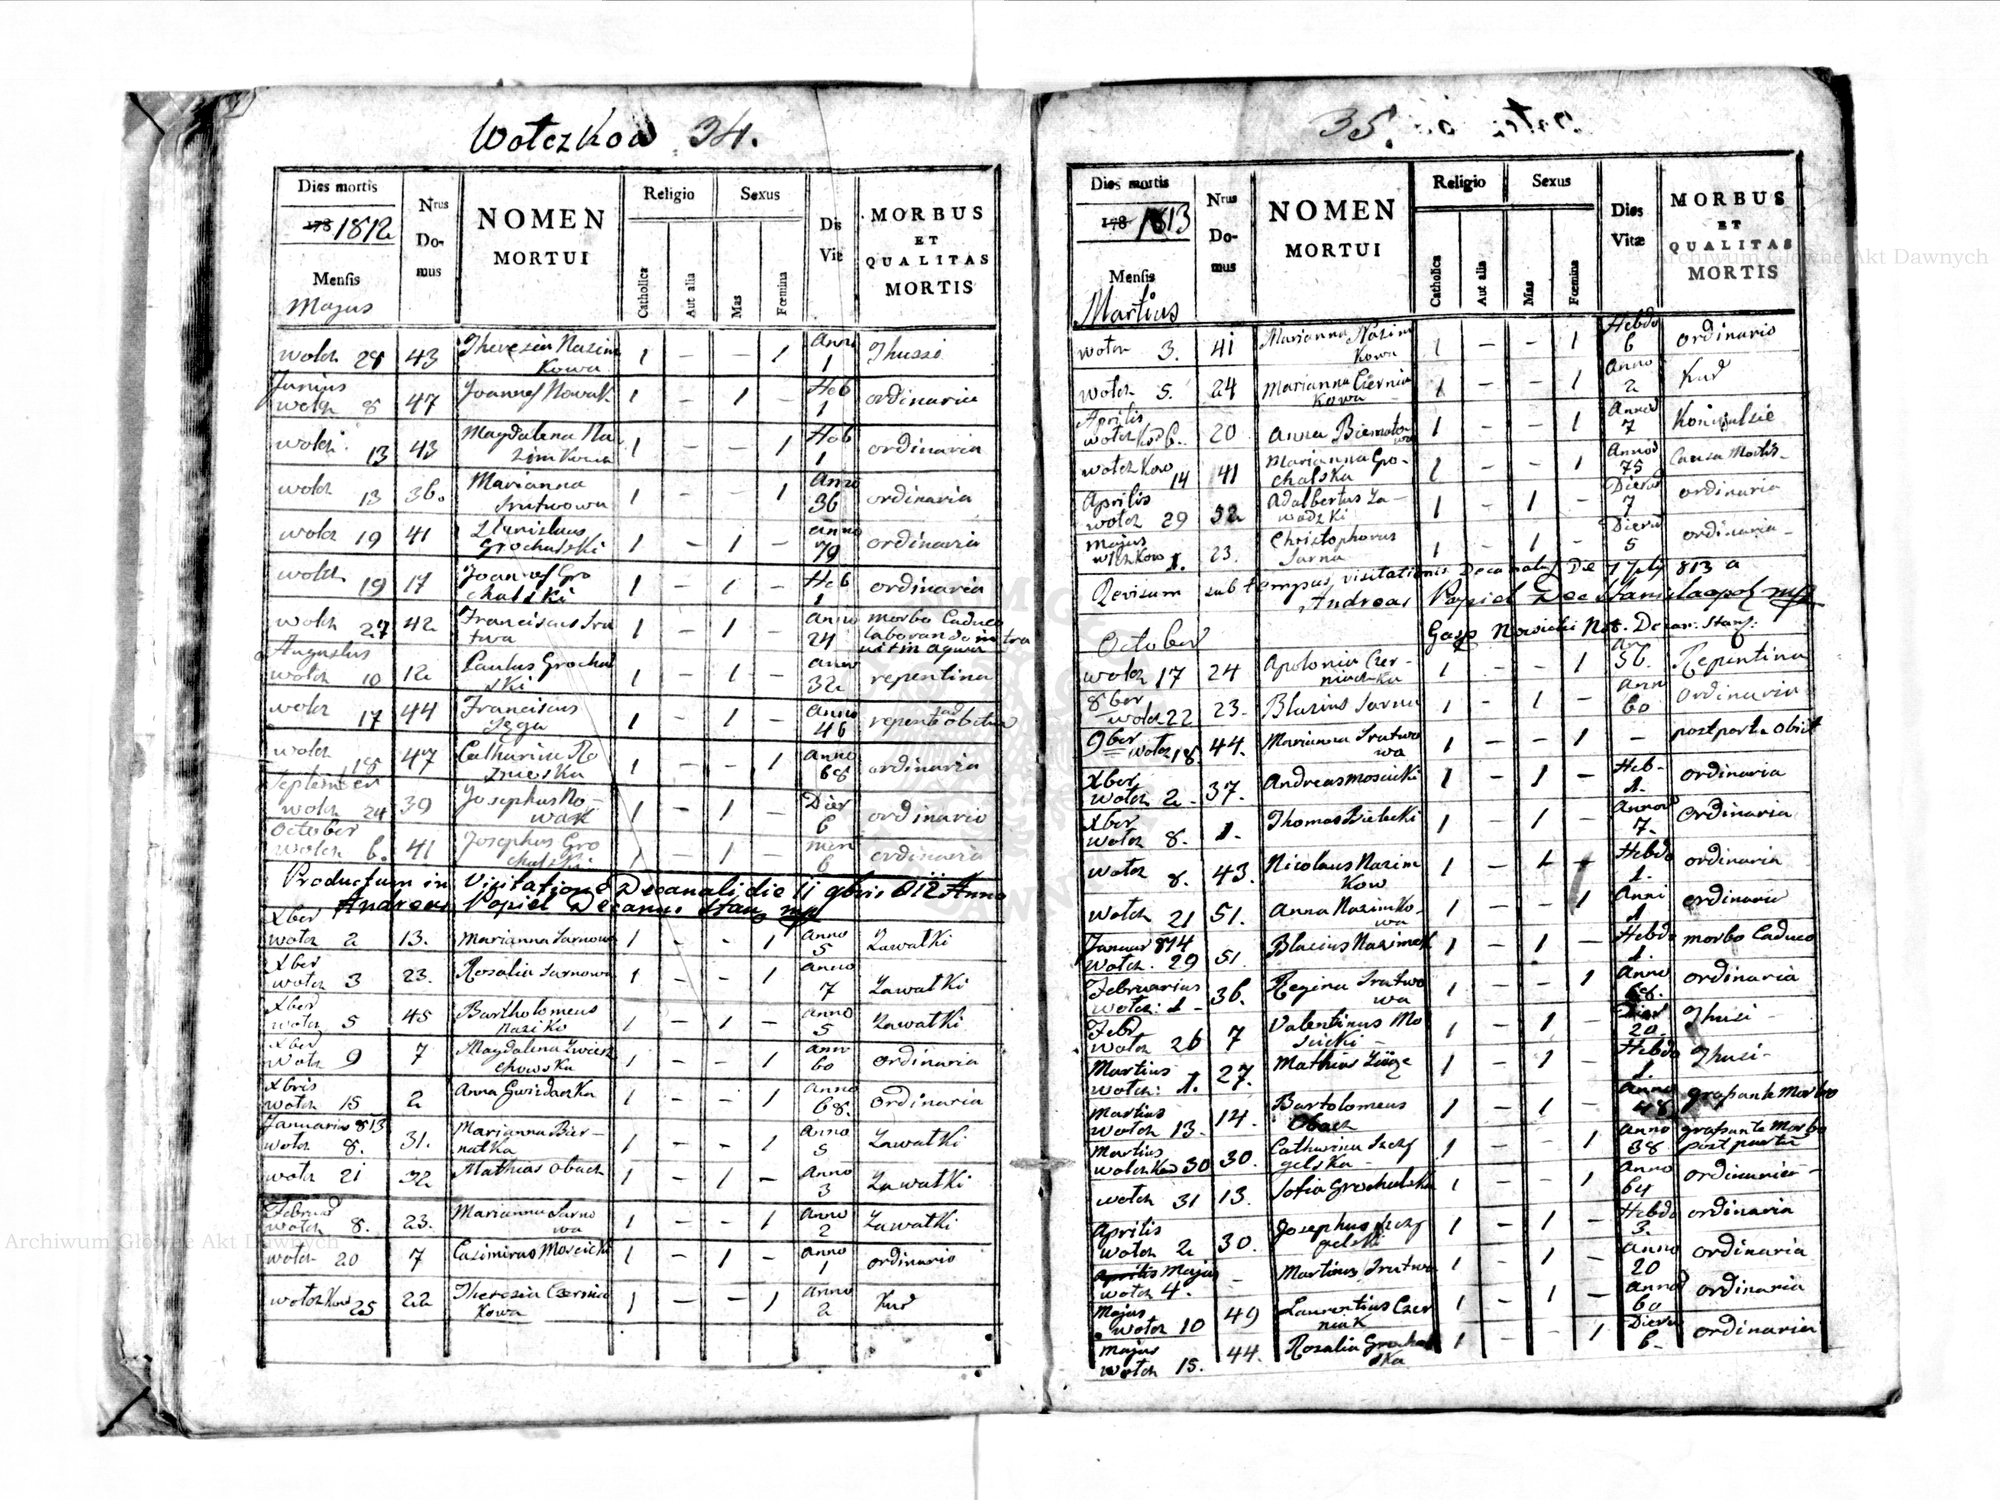 Wolczkow 34.
Dies mortis
178 1812
Mensis
Majus
Nrus Domus
NOMEN MORTUI
Religio
Catholica
Aut alia
Sexus
Mas
Fœmina
Di Vit
MORBUS ET QUALITAS MORTIS
wolcz 28 43 Theresia Nazimkowa 1 – – 1 Anno 1 Thussi
Junius
wolcz 8 47 Joannes Nowak 1 – 1 – Heb 1 ordinaria
wolcz 13 43 Magdalena Nazimkowa 1 – – 1 Heb 1 ordinaria
wolcz 13 36. Marianna Srutwowa 1 – – 1 Anno 36 ordinaria
wolcz 19 41 Stanislaus Grochalski 1 – 1 – anno 79 ordinaria
wolcz 19 17 Joannes Grochalski 1 – 1 – Heb 1 ordinaria
wolcz 27 42 Franciscus Srutwa 1 – 1 – anno 24 morbo Caduco laborando intravit in aquam
Augustus
wolcz 10 12 Paulus Grochalski 1 – 1 – anno 32 repentina
wolcz 17 44 Franciscus 1 – 1 – anno 46
wolcz 18 47 Catharina 1 – – 1 anno 68 ordinaria
September
wolcz 24 39 Josephus Nowak 1 – 1 – Dier 6 ordinario
October
wolcz 6. 41 Josephus Grochalski 1 – 1 – men 6 ordinaria
Productum in Visitatione Decanali die 11 9bris 812 Anno
Andreas Popiel Decanus Stan mp
Xber
wolcz 2 13. Marianna Sarnowa 1 – – 1 Anno 5 Zawalki
Xber
wolcz 3 23. Rosalia Sarnowa 1 – – 1 anno 7 Zawalki
Xber
wolcz 5 45 Bartholomeus 1 – 1 – anno 5 Zawalki
Xber
wolcz 9 7 Magdalena 1 – – 1 ann 60 ordinaria
Xbris
wolcz 15 2 Anna Gwizdaczka 1 – – 1 anno 68. ordinaria
Januarius 813
wolcz 8. 31. Marianna Biernatka 1 – – 1 anno 5 Zawalki
wolcz 21 32 Mathias Obacz 1 – 1 – anno 3 Zawalki
Februar
wolcz 8. 23. Marianna Sarnowa 1 – – 1 anno 2 Zawalki
wolcz 20 7 Casimirus Moscicki 1 – 1 – anno 1 ordinario
wolczkow 25 22 Theresia Czerniakowa 1 – – 1 anno 2 Kur
35.
Dies mortis
178 1813
Mensis
Martius
Nrus Domus
NOMEN MORTUI
Religio
Catholica
Aut alia
Sexus
Mas
Fœmina
Dies Vitæ
MORBUS ET QUALITAS MORTIS
wolcz 3. 41 Marianna Nazimkowa 1 – – 1 Hebdo 6 ordinario
wolcz 5. 24 Marianna Czerniakowa 1 – – 1 anno 2 Kur
Aprilis
wolczkow 6. 20 Anna Biernatowa 1 – – 1 Annor 7 Koniwulsie
wolczkow 14 41 Marianna Grochalska 1 – – 1 Annor 75 Causa Mortis
Aprilis
wolcz 29 52 Adalbertus Zawadzki 1 – 1 – Dierum 7 ordinaria
Majus
wlczkow 1. 23. Christophorus Sarna 1 – 1 – Dieru 5 ordinaria
Revisum sub tempus visitationis Decanalis Die 17 813 a
Andreas Popiel Dec Stanislaopol mp
Gasp Nowicki Not. Decan. Stanis.
October
wolcz 17 24 Apolonia Czerniaczka 1 – – 1 an 56. Repentina
8ber
wolcz 22 23. Blasius Sarna 1 – 1 – Ann 60 ordinaria
9ber
wolcz 18 44. Marianna Srutwowa 1 – – 1 – post partu obiit
Xber
wolcz 2. 37. Andreas Moscicki 1 – 1 – Heb. 1. ordinaria
Xber
wolcz 8. 1. Thomas Bielecki 1 – 1 – Annor 7. ordinaria
wolcz 8. 43. Nicolaus Nazimkow 1 – 1 – Hebdo 1. ordinaria
wolcz 21 51. Anna Nazimkowa 1 – – 1 Anni 1 ordinario
Januar 814
wolcz. 29 51. Blasius Nazimek 1 – 1 – Hebdo 1. morbo Caduco
Februarius
wolcz: 1 36. Regina Srutwowa 1 – – 1 Anno 68. ordinaria
Febr
wolcz 26 7 Valentinus Moscicki 1 – 1 – 20. Thusi
Martius
wolcz: 1. 27. Mathias 1 – 1 – Hebdo 1. Thusi
Martius
wolcz 13. 14. Bartolomeus Obacz 1 – 1 – anno 48 grasante Morbo
Martius
wolczkow 30 30. Catharina 1 – – 1 anno 38 grasante Morbo post partu
wolcz 31 13. Sofia Grochalska 1 – – 1 anno 64 ordinaria
Aprilis
wolcz 2 30. Josephus 1 – 1 – Hebdo 3. ordinaria
Aprilis Majus
wolcz 4. – Martinus Srutwa 1 – 1 – anno 20 ordinaria
Majus
wolcz 10 49 Laurentius Czerniak 1 – 1 – annor 60 ordinaria
Majus
wolcz 15. 44. Rosalia Grochalska 1 – – 1 Dieru 6. ordinaria
Archiwum Główne Akt Dawnych
Archiwum Główne Akt Dawnych